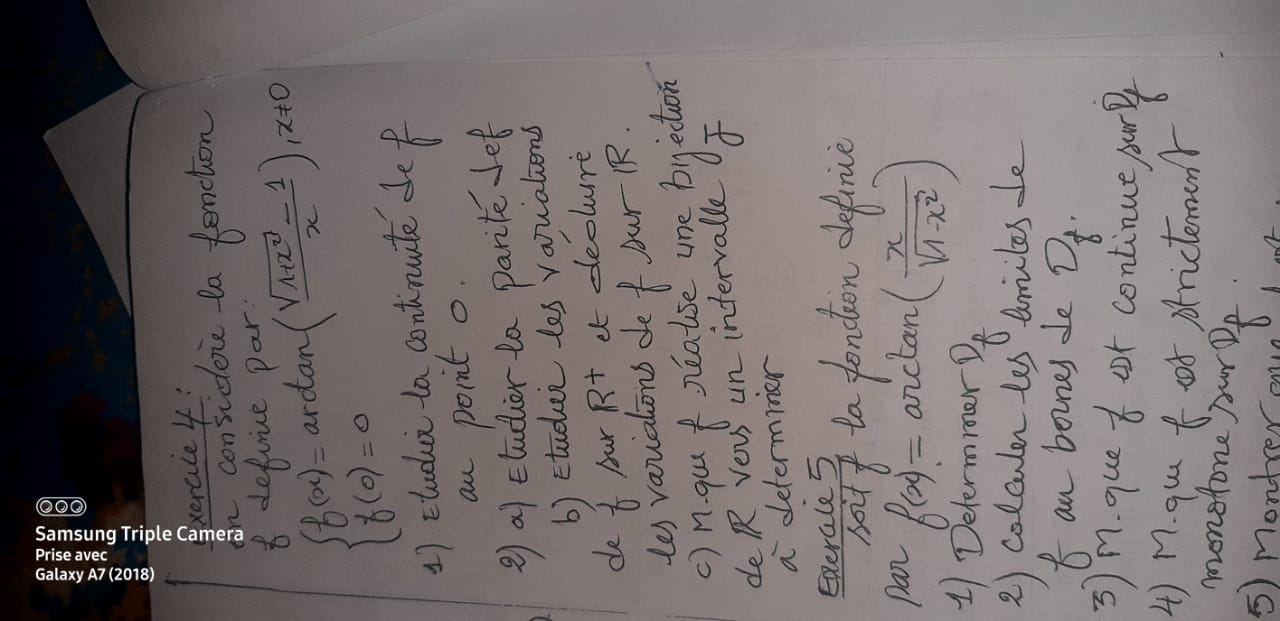 Exercice 4 :
on considère la fonction
f definie par :
{ f(x) = arctan( (√(1+x²) - 1) / x ), x≠0
{ f(0) = 0
1) Etudier la continuité de f
au point 0.
2) a) Etudier la parité de f
b) Etudier les variations
de f sur R+ et déduire
les variations de f sur IR.
c) M. que f réalise une bijection
de IR vers un intervalle J
à determiner
Exercice 5
soit f la fonction definie
par f(x) = arctan( x / √(1-x²) )
1) Determiner Df
2) calculer les limites de
f au bornes de Df.
3) M. que f est continue sur Df
4) M. que f est strictement
monotone sur Df.
5) Montrer que f est
Samsung Triple Camera
Prise avec
Galaxy A7 (2018)